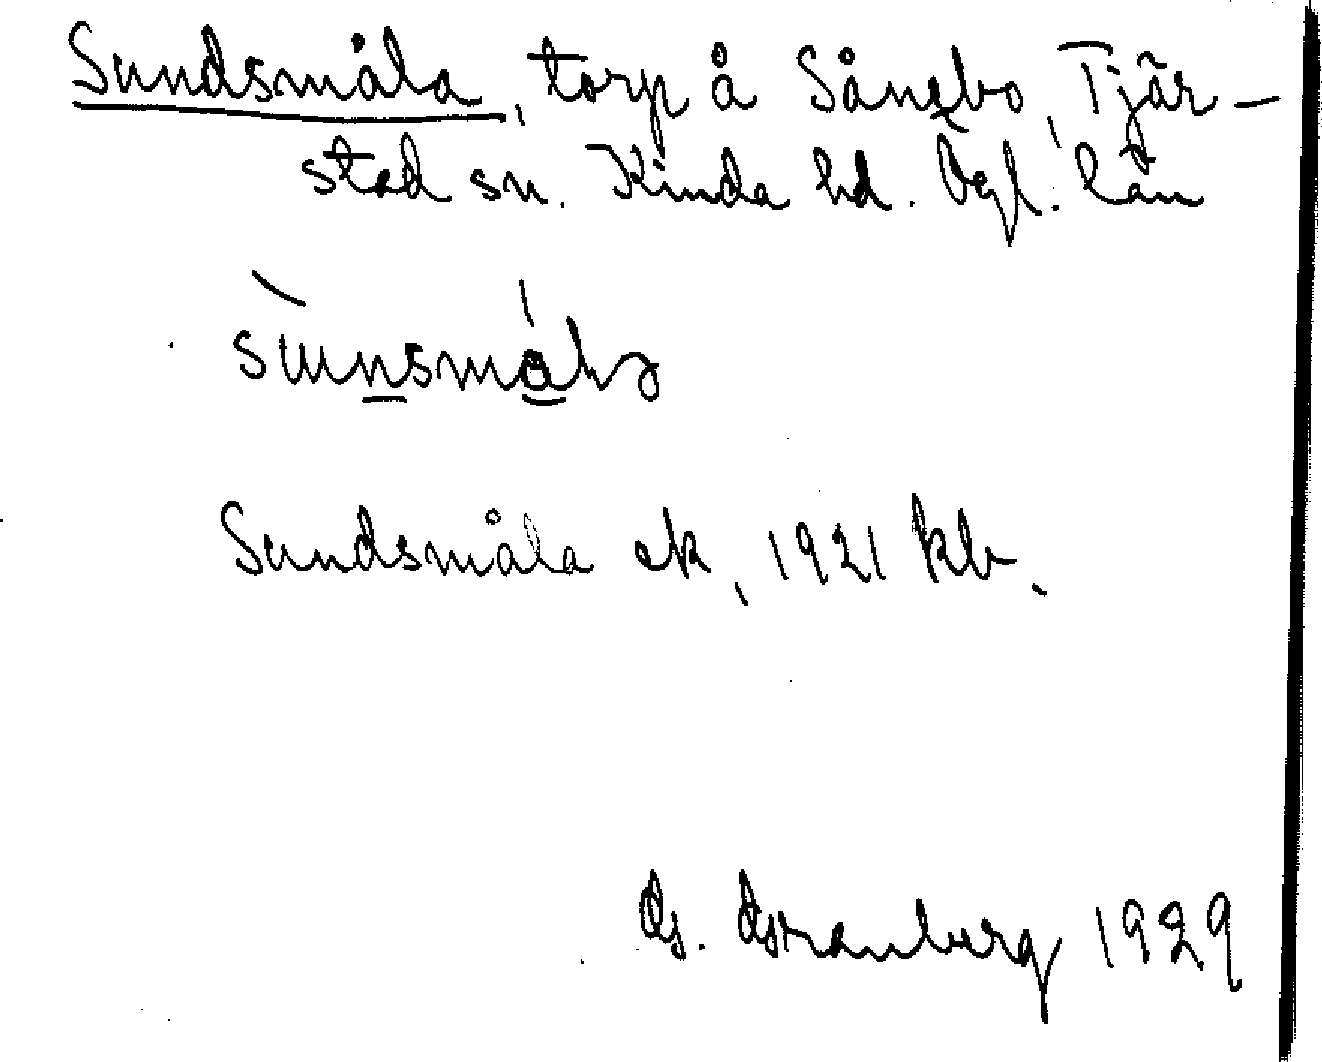 Sundsmåla, torp å Sånebo, Tjär-
stad sn. Kinda hd. Ögl. län
Sundsmåla ek, 1921 kb.
G. Granberg 1929